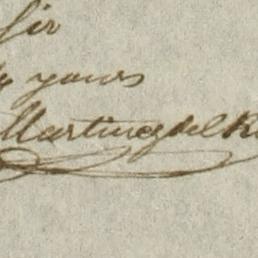 Sir
yours
Martinez del R